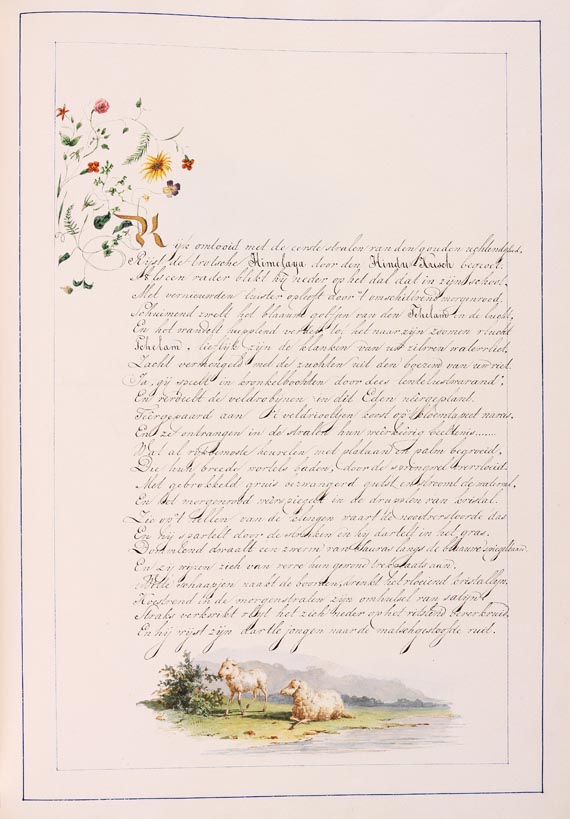 Rijk omlooid met de eerste stralen van den gouden
Rijst de trotsche Himelaya door den Hindu Kusch begroet.
Als een vader blikt hij neder op het dal dat in zijn school.
Met vernieuwden luister oplost door 't morgenrood,
Schuimend zwelt het blaauwe golfjen van den Tchelam in de lucht,
En het wandelt huppelend verder, tot het naar zijn zoomen vlucht
Tchelam, lieflijk zijn de klanken van uw zilvren watervliet.
Zacht vermengeld met de zuchten uit den boezem van uw riet.
Ja, gij speelt in kronkelbochten door dees lentelustwarand'.
En de veldrobijnen in dit Eden neêrgeplant.
Teêrgepaard aan 't veldviooltjen op 't bloemtapeet narcis.
En ze ontvangen in de stralen hun beeltenis......
Wat al heuvelen, met plataan en palm begroeid,
Die hun breede wortels baden, door de overvloeid.
Met gebrokkeld gruis bezwangerd gulpt en stroomt de waterval.
En het morgenrood weêrspiegelt in de druppelen van kristal.
Zie op 't tillen van de vaart de das
En hij spartelt door de struiken en hij dartelt in het gras.
draait een zwerm van langs de blaauwe
En zij wijzen zich van verre hun gewone aan.
Wilde schaapjen naakt de boomen, drinkt het vloeiend kristallijn.
Koestrend in de morgenstralen zijn omhulsel van satijn.
Straks verkwikt vlijt het zich neder op het beverkruid,
En hij wijst zijn dartle jongen naar de ruit.